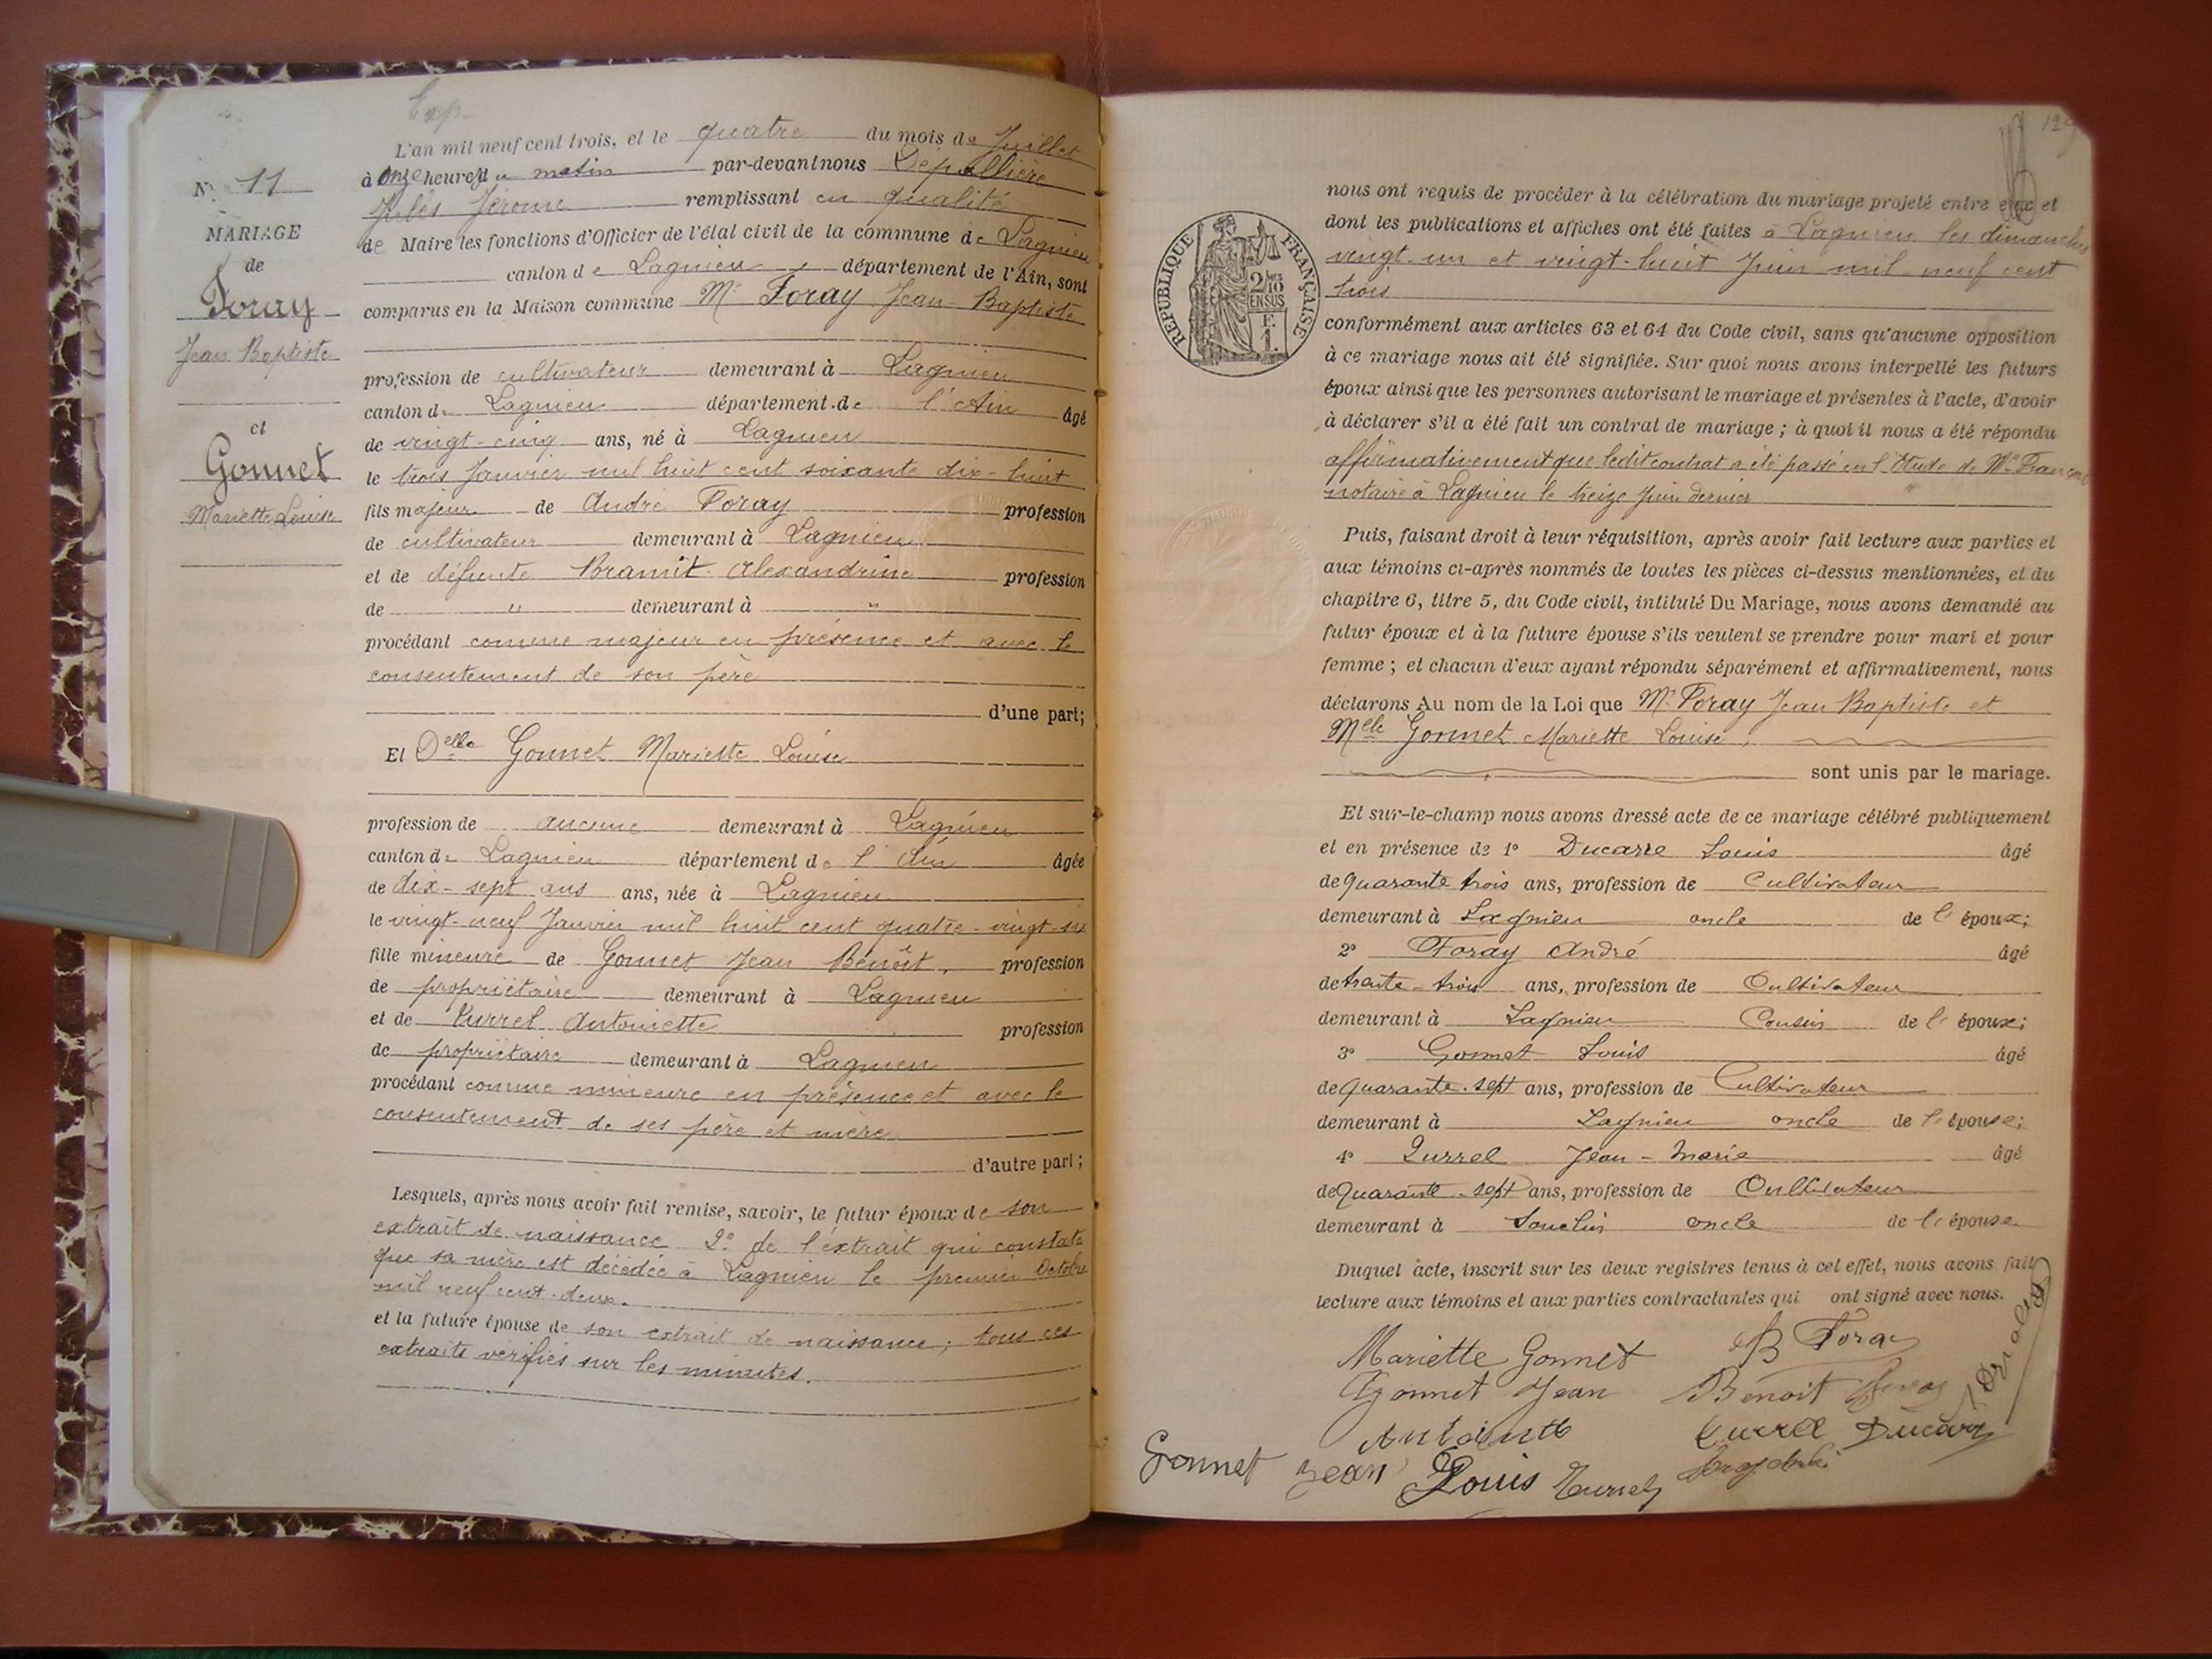 Exp.
N° 11
MARIAGE
de
Foray
Jean Baptiste
et
Gonnet
Mariette Louise
L'an mil neuf cent trois, et le quatre du mois de Juillet
à onze heures du matin par-devant nous Dépallière
Jules Jérome remplissant en qualité
de Maire les fonctions d'Officier de l'état civil de la commune de Lagnieu
canton de Lagnieu, département de l'Ain, sont
comparus en la Maison commune Mr Foray Jean-Baptiste
profession de cultivateur demeurant à Lagnieu
canton de Lagnieu département de l'Ain âgé
de vingt-cinq ans, né à Lagnieu
le trois Janvier mil huit cent soixante dix-huit
fils majeur de André Foray profession
de cultivateur demeurant à Lagnieu
et de défunte Bramit Alexandrine profession
de " demeurant à "
procédant comme majeur en présence et avec le
consentement de son père
d'une part;
Et Delle Gonnet Mariette Louise
profession de aucune demeurant à Lagnieu
canton de Lagnieu département de l'Ain âgée
de dix-sept ans ans, née à Lagnieu
le vingt-neuf Janvier mil huit cent quatre-vingt-six
fille mineure de Gonnet Jean Benoît, profession
de propriétaire demeurant à Lagnieu
et de Turrel Antoinette profession
de propriétaire demeurant à Lagnieu
procédant comme mineure en présence et avec le
consentement de ses père et mère
d'autre part;
Lesquels, après nous avoir fait remise, savoir, le futur époux de son
extrait de naissance 2° de l'extrait qui constate
que sa mère est décédée à Lagnieu le premier Octobre
mil neuf cent deux.
et la future épouse de son extrait de naissance; tous ces
extraits vérifiés sur les minutes.
129
RÉPUBLIQUE FRANÇAISE
2/10
EN SUS
E.
1.
nous ont requis de procéder à la célébration du mariage projeté entre eux et
dont les publications et affiches ont été faites à Lagnieu les dimanches
vingt-un et vingt-huit Juin mil-neuf cent
trois
conformément aux articles 63 et 64 du Code civil, sans qu'aucune opposition
à ce mariage nous ait été signifiée. Sur quoi nous avons interpellé les futurs
époux ainsi que les personnes autorisant le mariage et présentes à l'acte, d'avoir
à déclarer s'il a été fait un contrat de mariage; à quoi il nous a été répondu
affirmativement que ledit contrat a été passé en l'Etude de Me
notaire à Lagnieu le treize Juin dernier
Puis, faisant droit à leur réquisition, après avoir fait lecture aux parties et
aux témoins ci-après nommés de toutes les pièces ci-dessus mentionnées, et du
chapitre 6, titre 5, du Code civil, intitulé Du Mariage, nous avons demandé au
futur époux et à la future épouse s'ils veulent se prendre pour mari et pour
femme; et chacun d'eux ayant répondu séparément et affirmativement, nous
déclarons Au nom de la Loi que Mr Foray Jean Baptiste et
Melle Gonnet Mariette Louise,
sont unis par le mariage.
Et sur-le-champ nous avons dressé acte de ce mariage célébré publiquement
et en présence de 1° Ducarre Louis âgé
de quarante trois ans, profession de Cultivateur
demeurant à Lagnieu oncle de l'époux;
2° Foray André âgé
de trente-trois ans, profession de Cultivateur
demeurant à Lagnieu Cousin de l'époux;
3° Gonnet Louis âgé
de quarante-sept ans, profession de Cultivateur
demeurant à Lagnieu oncle de l'épouse;
4° Turrel Jean-Marie âgé
de quarante-sept ans, profession de Cultivateur
demeurant à Souclin oncle de l'épouse.
Duquel acte, inscrit sur les deux registres tenus à cet effet, nous avons fait
lecture aux témoins et aux parties contractantes qui ont signé avec nous.
Mariette Gonnet JB Foray
Gonnet Jean Benoit
Antoinette Turrel Ducarre
Gonnet Jean Louis Turrel